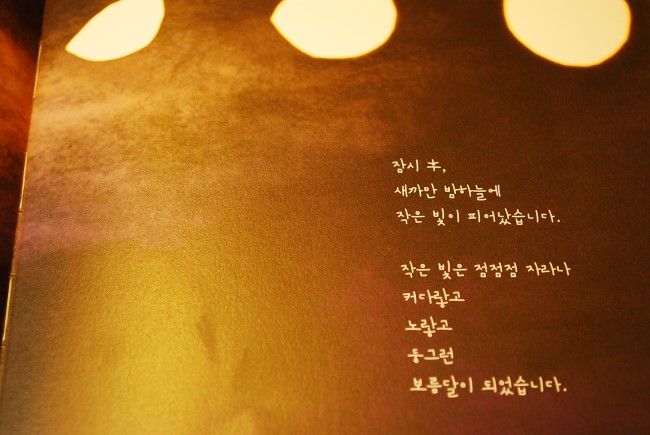 잠시 후,
새까만 밤하늘에
작은 빛이 피어났습니다.
작은 빛은 점점점 자라나
커다랗고
노랗고
둥그런
보름달이 되었습니다.